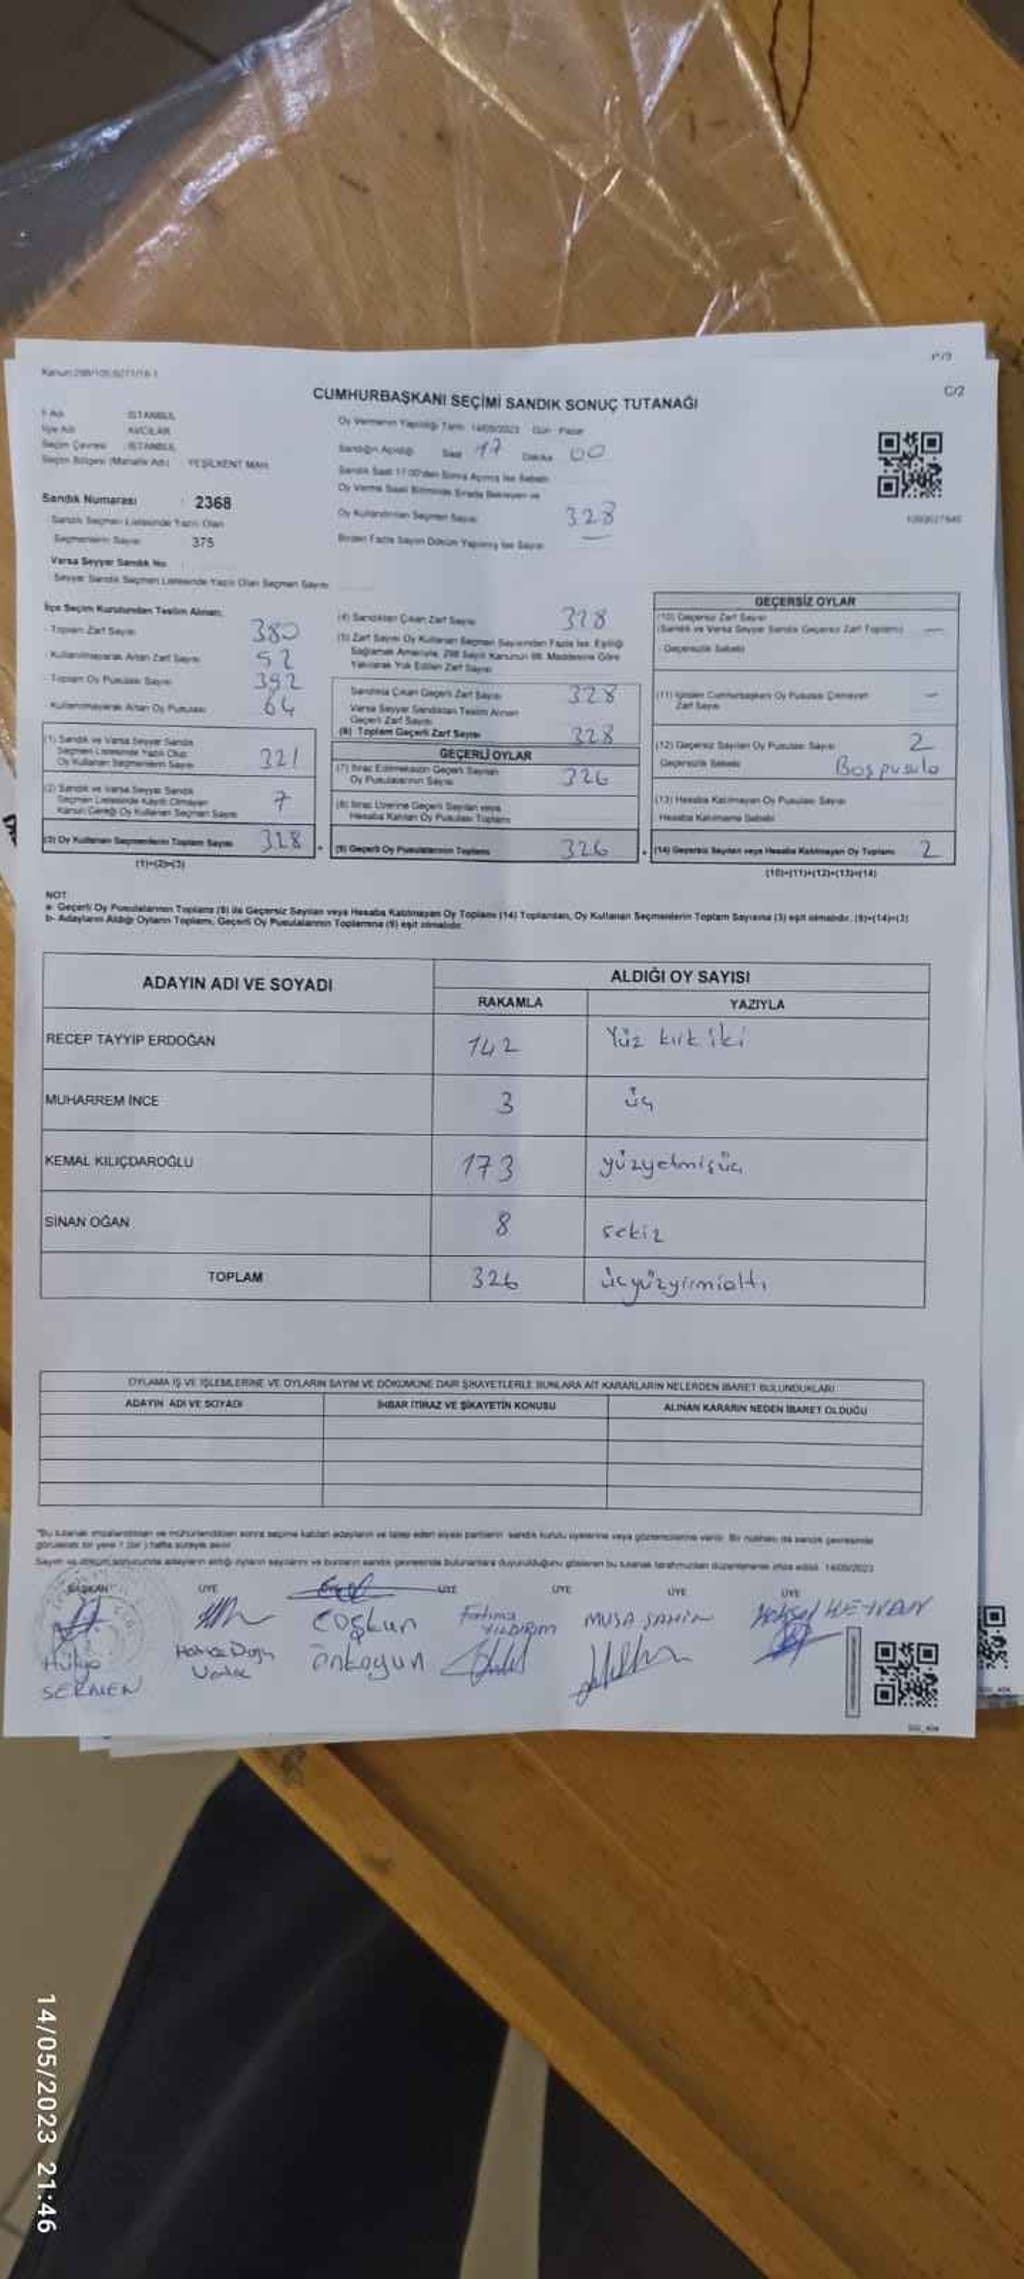 Kanun:298/105;6271/18-1
C/2
CUMHURBAŞKANI SEÇİMİ SANDIK SONUÇ TUTANAĞI
İl Adı İSTANBUL
İlçe Adı AVCILAR
Seçim Çevresi İSTANBUL
Seçim Bölgesi (Mahalle Adı) YEŞİLKENT MAH.
Sandık Numarası : 2368
Sandık Seçmen Listesinde Yazılı Olan
Seçmenlerin Sayısı 375
Varsa Seyyar Sandık No
Seyyar Sandık Seçmen Listesinde Yazılı Olan Seçmen Sayısı
Oy Vermenin Yapıldığı Tarih 14/05/2023 Gün Pazar
Sandığın Açıldığı Saat 17 Dakika 00
Sandık Saat 17.00'den Sonra Açılmış İse Sebebi
Oy Verme Saati Bitiminde Sırada Bekleyen ve
Oy Kullandırılan Seçmen Sayısı 328
Birden Fazla Sayım Döküm Yapılmış İse Sayısı
İlçe Seçim Kurulundan Teslim Alınan:
- Toplam Zarf Sayısı 380
- Kullanılmayarak Artan Zarf Sayısı 52
- Toplam Oy Pusulası Sayısı 392
- Kullanılmayarak Artan Oy Pusulası 64
(1) Sandık ve Varsa Seyyar Sandık
Seçmen Listesinde Yazılı Olup
Oy Kullanan Seçmenlerin Sayısı 321
(2) Sandık ve Varsa Seyyar Sandık
Seçmen Listesinde Kayıtlı Olmayan
Kanun Gereği Oy Kullanan Seçmen Sayısı 7
(3) Oy Kullanan Seçmenlerin Toplam Sayısı 328
(1)+(2)=(3)
(4) Sandıktan Çıkan Zarf Sayısı 328
(5) Zarf Sayısı Oy Kullanan Seçmen Sayısından Fazla İse, Eşitliği
Sağlamak Amacıyla, 298 Sayılı Kanunun 98. Maddesine Göre
Yakılarak Yok Edilen Zarf Sayısı
Sandıkta Çıkan Geçerli Zarf Sayısı 328
Varsa Seyyar Sandıktan Teslim Alınan
Geçerli Zarf Sayısı
(6) Toplam Geçerli Zarf Sayısı 328
GEÇERLİ OYLAR
(7) İtiraz Edilmeksizin Geçerli Sayılan
Oy Pusulalarının Sayısı 326
(8) İtiraz Üzerine Geçerli Sayılan veya
Hesaba Katılan Oy Pusulası Toplamı
(9) Geçerli Oy Pusulalarının Toplamı 326
GEÇERSİZ OYLAR
(10) Geçersiz Zarf Sayısı
(Sandık ve Varsa Seyyar Sandık Geçersiz Zarf Toplamı) —
Geçersizlik Sebebi
(11) İçinden Cumhurbaşkanı Oy Pusulası Çıkmayan
Zarf Sayısı —
(12) Geçersiz Sayılan Oy Pusulası Sayısı 2
Geçersizlik Sebebi Boş pusula
(13) Hesaba Katılmayan Oy Pusulası Sayısı
Hesaba Katılmama Sebebi
(14) Geçersiz Sayılan veya Hesaba Katılmayan Oy Toplamı 2
(10)+(11)+(12)+(13)=(14)
NOT
a- Geçerli Oy Pusulalarının Toplamı (9) ile Geçersiz Sayılan veya Hesaba Katılmayan Oy Toplamı (14) Toplamları, Oy Kullanan Seçmenlerin Toplam Sayısına (3) eşit olmalıdır. (9)+(14)=(3)
b- Adayların Aldığı Oyların Toplamı, Geçerli Oy Pusulalarının Toplamına (9) eşit olmalıdır.
ADAYIN ADI VE SOYADI ALDIĞI OY SAYISI
RAKAMLA YAZIYLA
RECEP TAYYİP ERDOĞAN 142 Yüz kırk iki
MUHARREM İNCE 3 üç
KEMAL KILIÇDAROĞLU 173 yüzyetmişüç
SİNAN OĞAN 8 sekiz
TOPLAM 326 üçyüzyirmialtı
OYLAMA İŞ VE İŞLEMLERİNE VE OYLARIN SAYIM VE DÖKÜMÜNE DAİR ŞİKAYETLERLE BUNLARA AİT KARARLARIN NELERDEN İBARET BULUNDUKLARI
ADAYIN ADI VE SOYADI İHBAR İTİRAZ VE ŞİKAYETİN KONUSU ALINAN KARARIN NEDEN İBARET OLDUĞU
*Bu tutanak imzalandıktan ve mühürlendikten sonra seçime katılan adayların ve talep eden siyasi partilerin sandık kurulu üyelerine veya gözlemcilerine verilir. Bir nüshası da sandık çevresinde
görülebilir bir yere 1 (bir) hafta süreyle asılır.
BAŞKAN ÜYE ÜYE ÜYE ÜYE ÜYE
Hülya
SERMEN
Coşkun
Fatma
YILDIRIM
MUSA ŞAHİN
14/05/2023 21:46